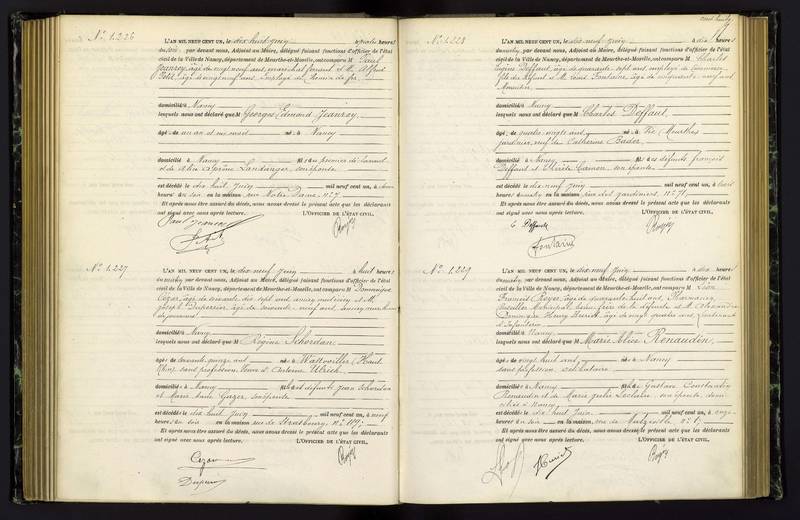 N.º 1226
L'AN MIL NEUF CENT UN, le dix huit juin à quatre heures
du soir, par devant nous, Adjoint au Maire, délégué faisant fonctions d'officier de l'état
civil de la Ville de Nancy, département de Meurthe-et-Moselle, ont comparu M Paul
Jeauroy, âgé de vingt neuf ans, maréchal ferrant et M. Alfred
Petit, âgé de vingt neuf ans, employé de Chemin de fer
domiciliés à Nancy
lesquels nous ont déclaré que M Georges Edmond Jeauroy,
âgé de un an et un mois né à Nancy
domicilié à Nancy fils du premier déclarant
et de son épouse
est décédé le dix huit juin mil neuf cent un, à
heures du soir en la maison rue Notre Dame, nº 7
Et après nous être assuré du décès, nous avons dressé le présent acte que les déclarants
ont signé avec nous après lecture. L'OFFICIER DE L'ÉTAT CIVIL,
Paul Jeauroy
N.º 1227
L'AN MIL NEUF CENT UN, le dix neuf juin à huit heures
du matin, par devant nous, Adjoint au Maire, délégué faisant fonctions d'officier de l'état
civil de la Ville de Nancy, département de Meurthe-et-Moselle, ont comparu M Dominique
Cezar, âgé de soixante dix sept ans, ancien et M.
Joseph Duperrier, âgé de soixante neuf ans,
de journal
domiciliés à Nancy
lesquels nous ont déclaré que M Régine Schordan,
âgée de soixante quinze ans née à Wattwiller (Haut
Rhin) sans profession, veuve d'Antoine Ulrich
domiciliée à Nancy fille des défunts Jean Schordan
et Marie Anne son épouse
est décédée le dix huit juin mil neuf cent un, à neuf
heures du soir en la maison rue de Strasbourg, nº 119
Et après nous être assuré du décès, nous avons dressé le présent acte que les déclarants
ont signé avec nous après lecture. L'OFFICIER DE L'ÉTAT CIVIL,
Cezar
N.º 1228
L'AN MIL NEUF CENT UN, le dix neuf juin à dix heures
du matin, par devant nous, Adjoint au Maire, délégué faisant fonctions d'officier de l'état
civil de la Ville de Nancy, département de Meurthe-et-Moselle, ont comparu M Charles
Deffaut, âgé de quarante sept ans, employé de commerce,
fils du défunt et M. Louis Fontaine, âgé de cinquante neuf ans
domiciliés à Nancy
lesquels nous ont déclaré que M Charles Deffaut,
âgé de quatre vingts ans né à Vic (Meurthe)
jardinier, veuf de Catherine Bader
domicilié à Nancy fils des défunts François
Deffaut et son épouse
est décédé le dix neuf juin mil neuf cent un, à trois
heures du matin en la maison rue des jardiniers, nº 71
Et après nous être assuré du décès, nous avons dressé le présent acte que les déclarants
ont signé avec nous après lecture. L'OFFICIER DE L'ÉTAT CIVIL,
Deffaut
Fontaine
N.º 1229
L'AN MIL NEUF CENT UN, le dix neuf juin à dix heures
du matin, par devant nous, Adjoint au Maire, délégué faisant fonctions d'officier de l'état
civil de la Ville de Nancy, département de Meurthe-et-Moselle, ont comparu M Léon
François Royer, âgé de quarante huit ans, Pharmacien,
Conseiller Municipal, de la défunte et M. Alexandre
Dominique Henry, âgé de vingt quatre ans, Lieutenant
d'Infanterie
domiciliés à Nancy
lesquels nous ont déclaré que M Marie Alice Renaudin,
âgée de vingt huit ans née à Nancy
sans profession, célibataire
domiciliée à Nancy fille de Gustave Constantin
Renaudin et de Marie Julie Leclaire son épouse, domi-
ciliés à Nancy
est décédée le dix huit juin mil neuf cent un, à onze
heures du soir en la maison, rue de Metz nº 17
Et après nous être assuré du décès, nous avons dressé le présent acte que les déclarants
ont signé avec nous après lecture. L'OFFICIER DE L'ÉTAT CIVIL,